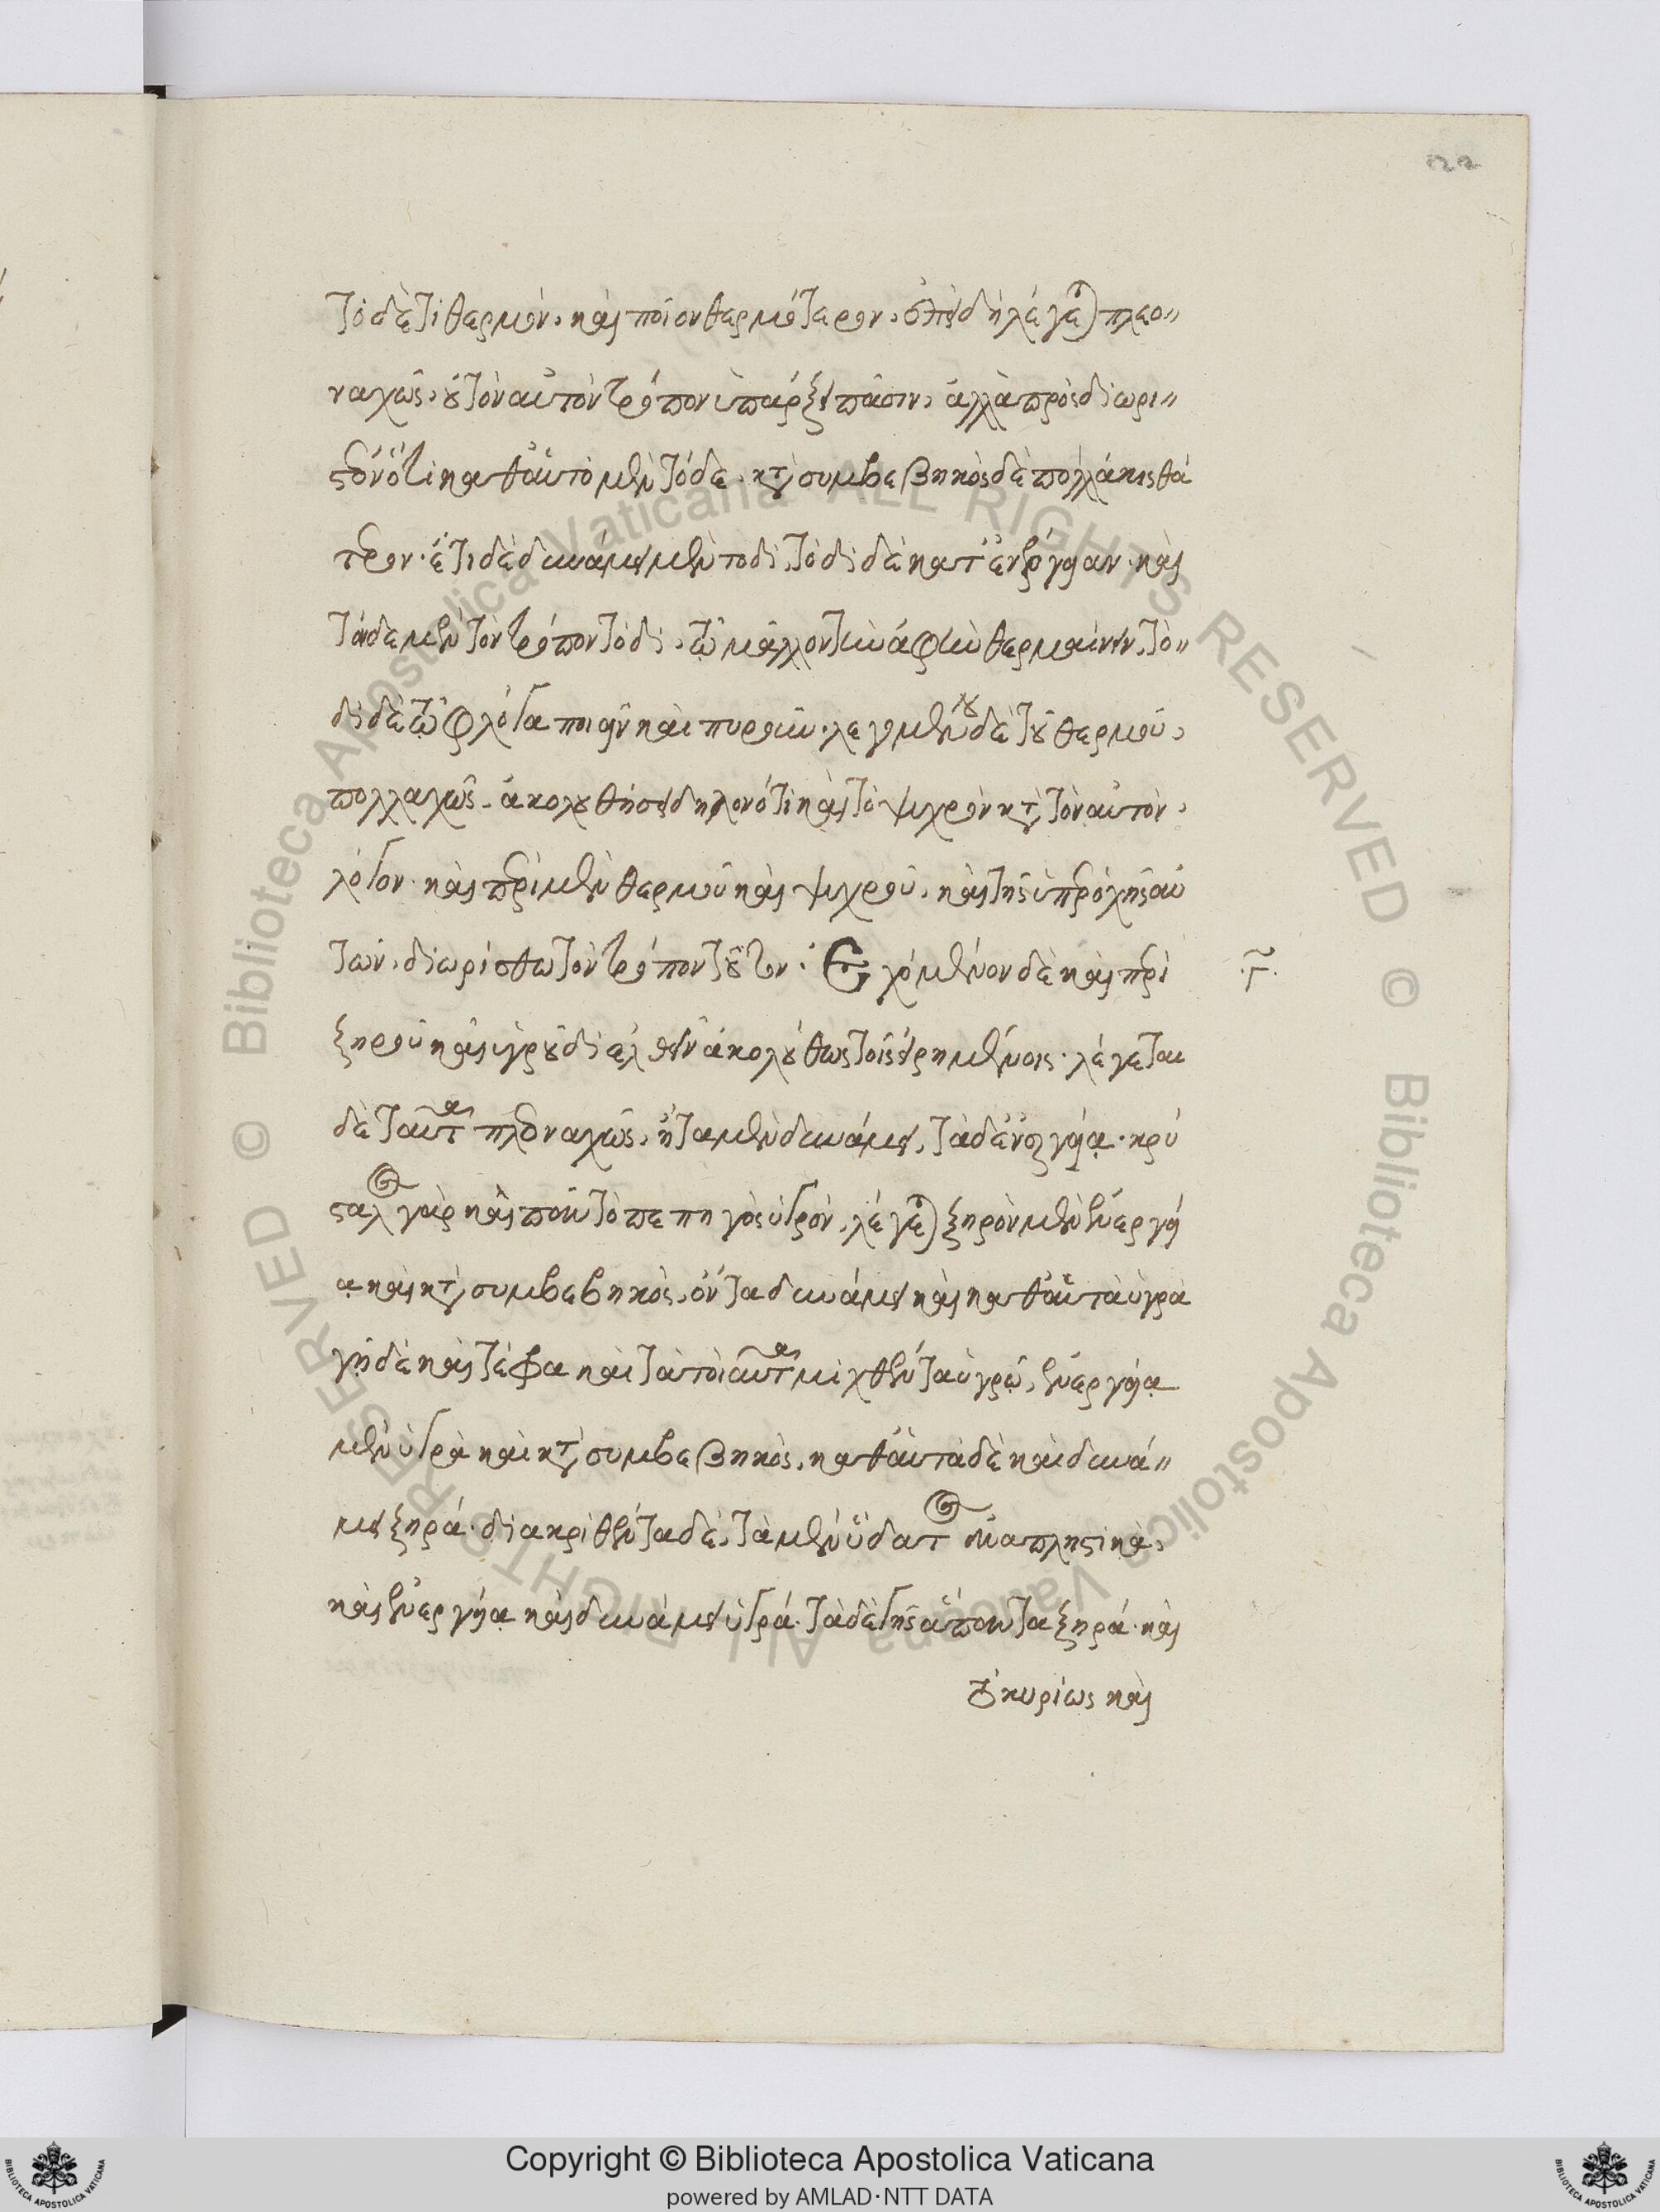 τὸ δὲ τὶ θερμὸν, καὶ ποῖον θερμότερον, ἐπειδὴ λέγεται πλεο〃
ναχῶς, οὐ τὸν αὐτὸν τρόπον ὑπάρξει πᾶσιν, ἀλλὰ προσδιωρι〃
στέον ὅτι καθ' αὑτὸ μὲν τόδε, κατὰ συμβεβηκὸς δὲ πολλάκις θά
τερον· ἔτι δὲ δυνάμει μὲν τοδὶ, τοδὶ δὲ κατ' ἐνέργειαν· καὶ
τόνδε μὲν τὸν τρόπον τοδὶ, τῷ μᾶλλον τὴν ἁφὴν θερμαίνειν, το〃
δὶ δὲ τῷ φλόγα ποιεῖν καὶ πυροῦν. λεγομένου δὲ τοῦ θερμοῦ,
πολλαχῶς, ἀκολουθήσει δηλονότι καὶ τὸ ψυχρὸν κατὰ τὸν αὐτὸν,
λόγον· καὶ περὶ μὲν θερμοῦ καὶ ψυχροῦ, καὶ τῆς ὑπεροχῆς αὐ
τῶν, διωρίσθω τὸν τρόπον τοῦτον· Ἐχόμενον δὲ καὶ περὶ
.γ.
ξηροῦ καὶ ὑγροῦ διελθεῖν ἀκολούθως τοῖς εἰρημένοις· λέγεται
δὲ ταῦτα πλεοναχῶς, ἢ τὰ μὲν δυνάμει, τὰ δ' ἐνεργείᾳ· κρύ
σταλλος γὰρ καὶ πᾶν τὸ πεπηγὸς ὑγρόν, λέγεται ξηρὸν μὲν ἐνεργεί
ᾳ καὶ κατὰ συμβεβηκὸς, ὄντα δυνάμει καὶ καθ' αὑτὰ ὑγρὰ
γῆ δὲ καὶ τέφρα καὶ τὰ τοιαῦτα μιχθέντα ὑγρῷ, ἐνεργείᾳ
μὲν ὑγρὰ καὶ κατὰ συμβεβηκὸς, καθ' αὑτὰ δὲ καὶ δυνά〃
μει ξηρά· διακριθέντα δὲ, τὰ μὲν ὕδατος ἀναπληστικὰ,
καὶ ἐνεργείᾳ καὶ δυνάμει ὑγρά· τὰ δὲ γῆς ἅπαντα ξηρά· καὶ
τὸ κυρίως καὶ